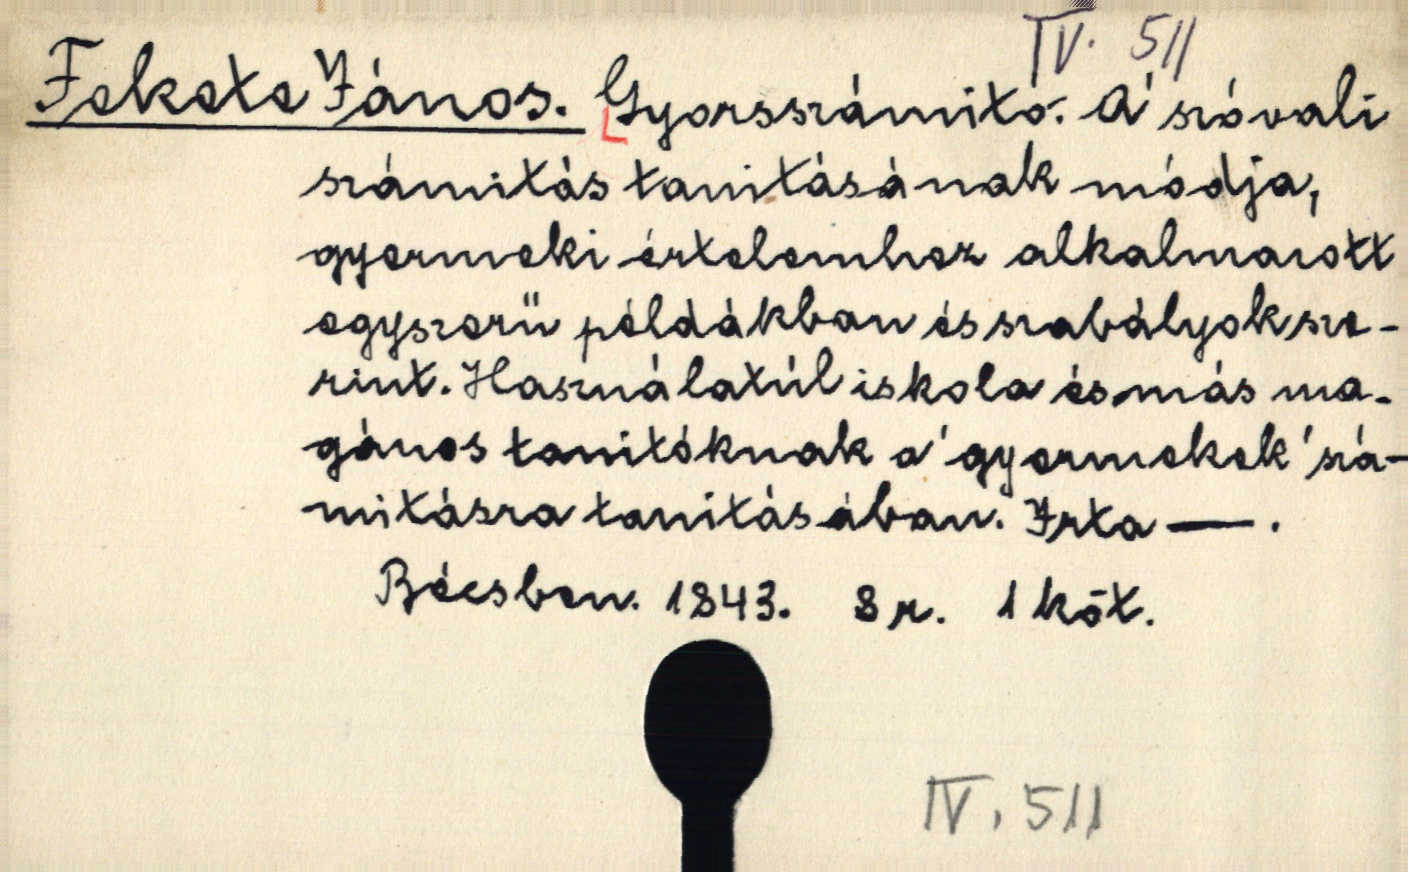 IV. 511
Fekete János. Gyorsszámitó. A' szóvali
számitás tanitásának módja,
gyermeki értelemhez alkalmazott
egyszerü példákban és szabályok sze-
rint. Használatúl iskola és más ma-
gános tanitóknak a' gyermekek' szá-
mitásra tanitásában. Irta — .
Bécsben. 1843. 8 r. 1 köt.
IV. 511